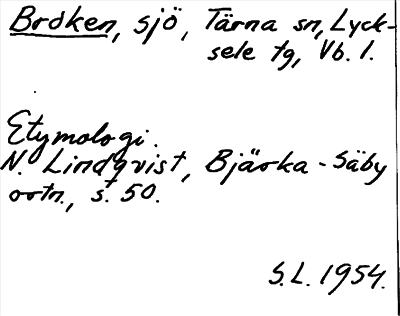 Broken, sjö, Tärna sn, Lyck-
sele tg, Vb. l.
Etymologi.
N. Lindqvist, Bjärka-Säby
ortn., s. 50.
S.L. 1954.